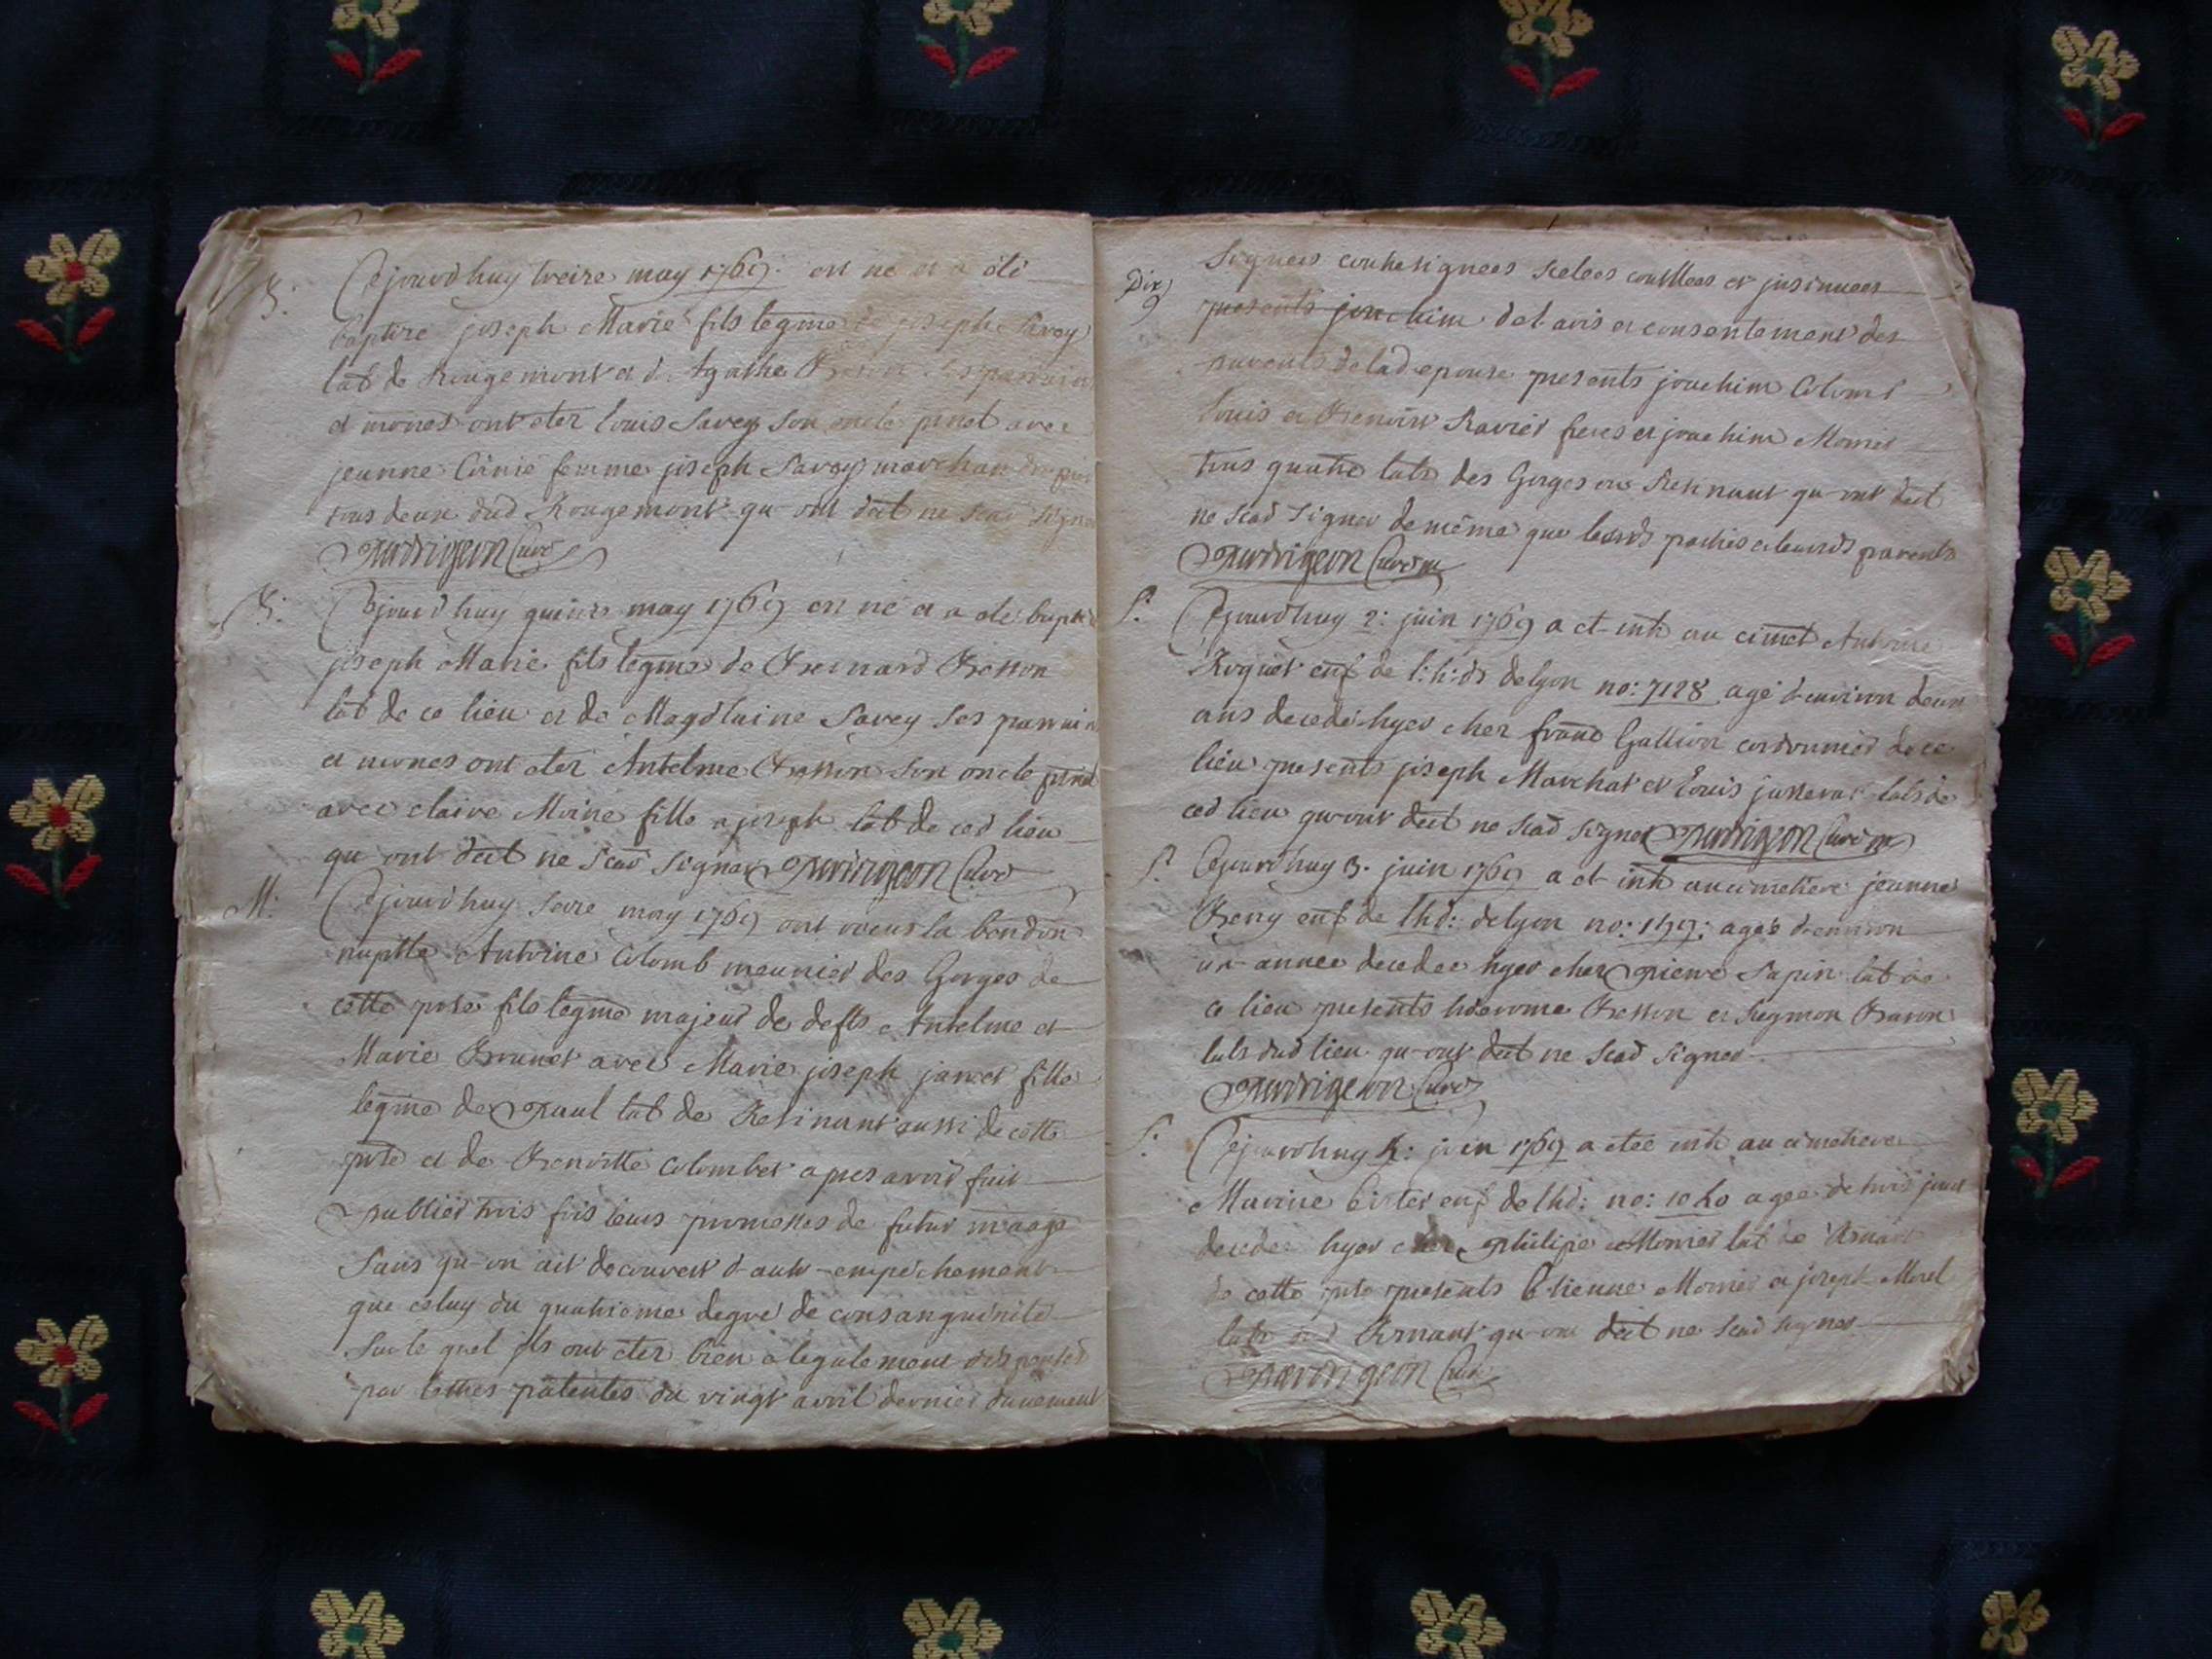 B. Cejourdhuy treize may 1769. est né et a été
baptize joseph Marie fils legme de joseph Savey
lab de Rougemont et d Agathe ses parrain
et mones ont eter louis Savey son oncle pnel avec
jeanne femme joseph Savey
tous deux dud Rougemont qu ont deit ne scad signer
Curé
B: Cejourdhuy quinze may 1769 est né et a ete baptize
joseph Marie fils legme de Bernard Besson
lab de ce lieu et de Magdlaine Savey ses parrain
et mones ont eter Antelme Besson son oncle pnel
avec claire Moine fille a joseph lab de ced lieu
qu ont deit ne scad signer Curé
M: Cejourdhuy seize may 1769 ont receus la benedon
nuptle Antoine Colomb meunier des Gorges de
cette pnse fils legme majeur de defts Antelme et
Marie Brunet avec Marie joseph janet fille
legme de paul lab de Resinant aussi de cette
pnse et de Benoitte Colombet apres avoir fait
publier trois fois leurs promesses de futur maage
Sans qu-on ait decouvert d-autr-empêchement
que celuy du quatriéme degré de consanguinité
Sur le quel ils ont eter bien et legalement dispensés
par lettres patentes du vingt avril dernier duement
Signées contresignees scelees et jnsinuees
Dix
9 presents joachim de l-avis et consentement des
parents de lad epouse presents joachim Colomb
louis et Benoist Ravier freres et joachim Monier
tous quatre labs des Gorges ou Resinant qu-ont deit
ne scad signer de même que lesds parties et leurds parents
Curé
S. Cejourdhuy 2: juin 1769 a et-inh au cimet Antoine
Roquet enf de l: h: d: de lyon no: 7128 agé d-environ deux
ans decedé hyer chez franc Gallion cordonnier de ce
lieu presents joseph Marchat et louis labs de
ced lieu qu-ont deit ne scad signer Curé
S. Cejourdhuy 3. juin 1769 a et inh au cimetiere jeanne
enf de lhd: de lyon no: agée d-environ
un-annee decedee hyer chez pierre Sapin lab de
ce lieu presents hierome Besson et
labs dud lieu qu-ont deit ne scad signer
Curé
S. Cejourdhuy 4: juin 1769 a etée inh au cimetiere
enf de lhd: no: agee de trois jours
decedee hyer chez philipe Monier lab de
de cette pnse presents Etienne Monier et joseph Morel
labs dud qu-ont deit ne scad signer
Curé